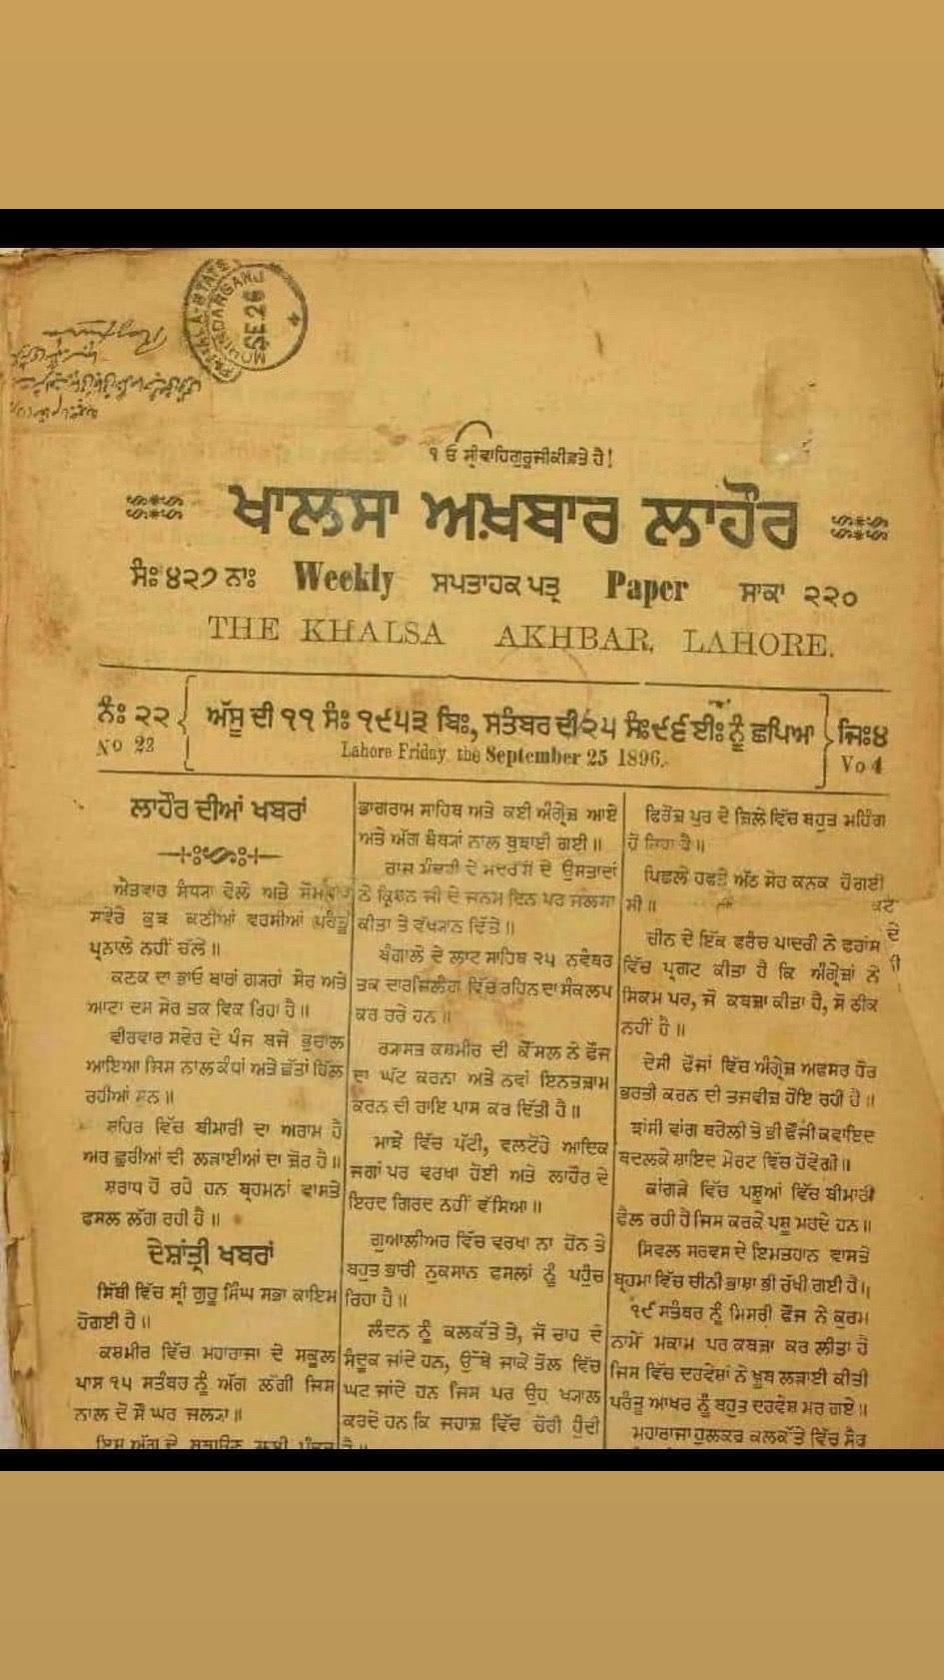 PATIALA STATE
MOHINDARGANJ
SE 26
੧ ਓ ਸ੍ਰੀਵਾਹਿਗੁਰੂਜੀਕੀਫ਼ਤੇ ਹੈ!
ਖਾਲਸਾ ਅਖ਼ਬਾਰ ਲਾਹੌਰ
ਸੰਃ ੪੨੭ ਨਾਃ Weekly ਸਪਤਾਹਕ ਪਤ੍ਰ Paper ਸਾਕਾ ੨੨੦
THE KHALSA AKHBAR, LAHORE.
ਨੰਃ ੨੨
No 22
ਅੱਸੂ ਦੀ ੧੧ ਸੰਃ ੧੯੫੩ ਬਿਃ, ਸਤੰਬਰ ਦੀ ੨੫ ਸੰਃ ੯੬ ਈਃ ਨੂੰ ਛਪਿਆ
Lahore Friday the September 25 1896.
ਜਿਃ੪
Vo 4
ਲਾਹੌਰ ਦੀਆਂ ਖਬਰਾਂ
ਐਤਵਾਰ ਸੰਧ੍ਯਾ ਵੇਲੇ ਅਤੇ ਸੋਮਵਾਰ
ਸਵੇਰੇ ਕੁਝ ਕਣੀਆਂ ਵਰਸੀਆਂ ਪਰੰਤੂ
ਪ੍ਰਨਾਲੇ ਨਹੀਂ ਚੱਲੇ॥
ਕਣਕ ਦਾ ਭਾਓ ਬਾਰਾਂ ਗ੍ਯਰਾਂ ਸੇਰ ਅਤੇ
ਆਟਾ ਦਸ ਸੇਰ ਤਕ ਵਿਕ ਰਿਹਾ ਹੈ॥
ਵੀਰਵਾਰ ਸਵੇਰ ਦੇ ਪੰਜ ਬਜੇ ਭੁਚਾਲ
ਆਇਆ ਜਿਸ ਨਾਲ ਕੰਧਾਂ ਅਤੇ ਛੱਤਾਂ ਹਿੱਲ
ਰਹੀਆਂ ਸਨ॥
ਸ਼ਹਿਰ ਵਿੱਚ ਬੀਮਾਰੀ ਦਾ ਅਰਾਮ ਹੈ
ਅਰ ਛੁਰੀਆਂ ਦੀ ਲੜਾਈਆਂ ਦਾ ਜ਼ੋਰ ਹੈ॥
ਸ਼ਰਾਧ ਹੋ ਰਹੇ ਹਨ ਬ੍ਰਹਮਨਾਂ ਵਾਸਤੇ
ਫਸਲ ਲੱਗ ਰਹੀ ਹੈ॥
ਦੇਸ਼ਾਂਤ੍ਰੀ ਖਬਰਾਂ
ਸਿੱਬੀ ਵਿੱਚ ਸ੍ਰੀ ਗੁਰੂ ਸਿੰਘ ਸਭਾ ਕਾਇਮ
ਹੋਗਈ ਹੈ॥
ਕਸ਼ਮੀਰ ਵਿੱਚ ਮਹਾਰਾਜਾ ਦੇ ਸਕੂਲ
ਪਾਸ ੧੫ ਸਤੰਬਰ ਨੂੰ ਅੱਗ ਲੱਗੀ ਜਿਸ
ਨਾਲ ਦੋ ਸੌ ਘਰ ਜਲ੍ਯਾ॥
ਇਸ ਅੱਗ ਦੇ ਬੁਝਾਉਣ
ਡਾਗਰਾਮ ਸਾਹਿਬ ਅਤੇ ਕਈ ਅੰਗ੍ਰੇਜ਼ ਆਏ
ਅਤੇ ਅੱਗ ਬੰਬ੍ਯਾਂ ਨਾਲ ਬੁਝਾਈ ਗਈ॥
ਰਾਜ ਮੰਦਰੀ ਦੇ ਮਦਰੱਸੇ ਦੇ ਉਸਤਾਦਾਂ
ਨੇ ਕ੍ਰਿਸ਼ਨ ਜੀ ਦੇ ਜਨਮ ਦਿਨ ਪਰ ਜਲਸਾ
ਕੀਤਾ ਤੇ ਵੱਖ੍ਯਾਨ ਦਿੱਤੇ॥
ਬੰਗਾਲੇ ਦੇ ਲਾਟ ਸਾਹਿਬ ੨੫ ਨਵੰਬਰ
ਤਕ ਦਾਰਜਿਲੰਗ ਵਿੱਚ ਰਹਿਨ ਦਾ ਸੰਕਲਪ
ਕਰ ਰਹੇ ਹਨ॥
ਰ੍ਯਾਸਤ ਕਸ਼ਮੀਰ ਦੀ ਕੌਂਸਲ ਨੇ ਫੌਜ
ਦਾ ਘੱਟ ਕਰਨਾ ਅਤੇ ਨਵਾਂ ਇਨਤਜ਼ਾਮ
ਕਰਨ ਦੀ ਰਾਇ ਪਾਸ ਕਰ ਦਿੱਤੀ ਹੈ॥
ਮਾਝੇ ਵਿੱਚ ਪੱਟੀ, ਵਲਟੋਹੇ ਆਦਿਕ
ਜਗਾਂ ਪਰ ਵਰਖਾ ਹੋਈ ਅਤੇ ਲਾਹੌਰ ਦੇ
ਇਰਦ ਗਿਰਦ ਨਹੀਂ ਵੱਸਿਆ॥
ਗੁਆਲੀਅਰ ਵਿੱਚ ਵਰਖਾ ਨਾ ਹੋਨ ਤੇ
ਬਹੁਤ ਭਾਰੀ ਨੁਕਸਾਨ ਫਸਲਾਂ ਨੂੰ ਪਹੁੰਚ
ਰਿਹਾ ਹੈ॥
ਲੰਦਨ ਨੂੰ ਕਲਕੱਤੇ ਤੇ, ਜੋ ਚਾਹ ਦੇ
ਸੰਦੂਕ ਜਾਂਦੇ ਹਨ, ਉੱਥੇ ਜਾਕੇ ਤੋਲ ਵਿੱਚ
ਘਟ ਜਾਂਦੇ ਹਨ ਜਿਸ ਪਰ ਉਹ ਖ੍ਯਾਲ
ਕਰਦੇ ਹਨ ਕਿ ਜਹਾਜ਼ ਵਿੱਚ ਚੋਰੀ ਹੁੰਦੀ
ਹੈ॥
ਫਿਰੋਜ਼ ਪੁਰ ਦੇ ਜ਼ਿਲੇ ਵਿੱਚ ਬਹੁਤ ਮਹਿੰਗ
ਹੋ ਰਿਹਾ ਹੈ॥
ਪਿਛਲੇ ਹਫਤੇ ਅੱਠ ਸੇਰ ਕਨਕ ਹੋਗਈ
ਸੀ॥
ਚੀਨ ਦੇ ਇੱਕ ਫਰੰਚ ਪਾਦਰੀ ਨੇ ਫਰਾਂਸ
ਵਿੱਚ ਪ੍ਰਗਟ ਕੀਤਾ ਹੈ ਕਿ ਅੰਗ੍ਰੇਜ਼ਾਂ ਨੇ
ਸਿਕਮ ਪਰ, ਜੋ ਕਬਜ਼ਾ ਕੀਤਾ ਹੈ, ਸੋ ਠੀਕ
ਨਹੀਂ ਹੈ॥
ਦੇਸੀ ਫੌਜਾਂ ਵਿੱਚ ਅੰਗ੍ਰੇਜ਼ ਅਫਸਰ ਹੋਰ
ਭਰਤੀ ਕਰਨ ਦੀ ਤਜਵੀਜ਼ ਹੋਇ ਰਹੀ ਹੈ॥
ਝਾਂਸੀ ਵਾਂਗ ਬਰੇਲੀ ਤੇ ਭੀ ਫੌਜੀ ਕਵਾਇਦ
ਬਦਲਕੇ ਸ਼ਾਇਦ ਮੇਰਟ ਵਿੱਚ ਹੋਵੇਗੀ॥
ਕਾਂਗੜੇ ਵਿੱਚ ਪਸ਼ੂਆਂ ਵਿੱਚ ਬੀਮਾਰੀ
ਫੈਲ ਰਹੀ ਹੈ ਜਿਸ ਕਰਕੇ ਪਸ਼ੂ ਮਰਦੇ ਹਨ॥
ਸਿਵਲ ਸਰਵਸ ਦੇ ਇਮਤਹਾਨ ਵਾਸਤੇ
ਬ੍ਰਹਮਾ ਵਿੱਚ ਚੀਨੀ ਭਾਸ਼ਾ ਭੀ ਰੱਖੀ ਗਈ ਹੈ॥
੧੯ ਸਤੰਬਰ ਨੂੰ ਮਿਸਰੀ ਫੌਜ ਨੇ ਕੁਰਮ
ਨਾਮੇ ਮਕਾਮ ਪਰ ਕਬਜ਼ਾ ਕਰ ਲੀਤਾ ਹੈ
ਜਿਸ ਵਿੱਚ ਦਰਵੇਸ਼ਾਂ ਨੇ ਖੂਬ ਲੜਾਈ ਕੀਤੀ
ਪਰੰਤੂ ਆਖਰ ਨੂੰ ਬਹੁਤ ਦਰਵੇਸ਼ ਮਰ ਗਏ॥
ਮਹਾਰਾਜਾ ਹੁਲਕਰ ਕਲਕੱਤੇ ਵਿੱਚ ਸੈਰ